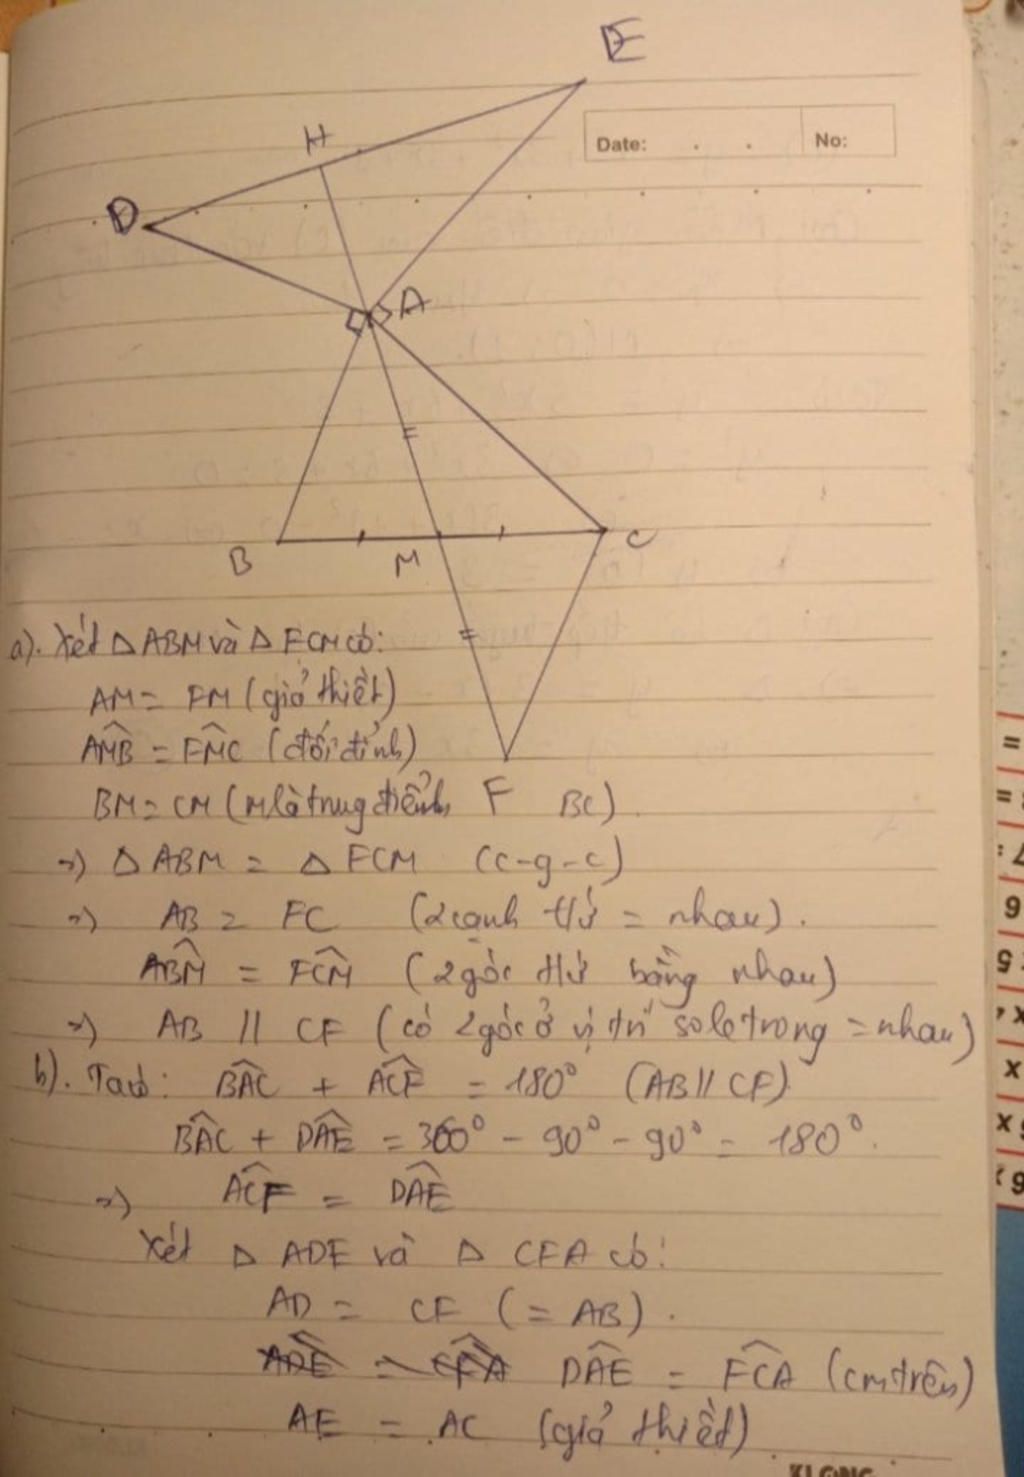 E
H
Date: . . No:
D
A
B M C
a). Xét △ABM và △FCM có:
AM = FM (giả thiết)
AMB̂ = FMĈ (đối đỉnh)
F
BM = CM (M là trung điểm BC).
=) △ABM = △FCM (c-g-c)
=) AB = FC (2 cạnh t/ứ = nhau).
ABM̂ = FCM̂ (2 góc t/ứ bằng nhau)
=) AB // CF (có 2 góc ở vị trí so le trong = nhau)
b). Ta có: BAĈ + ACF̂ = 180° (AB // CF)
BAĈ + DAÊ = 360° - 90° - 90° = 180°.
=) ACF̂ = DAÊ
Xét △ ADE và △ CFA có:
AD = CF (= AB).
ADE = CFA DAÊ = FCÂ (cm trên)
AE = AC (giả thiết)
KLONG